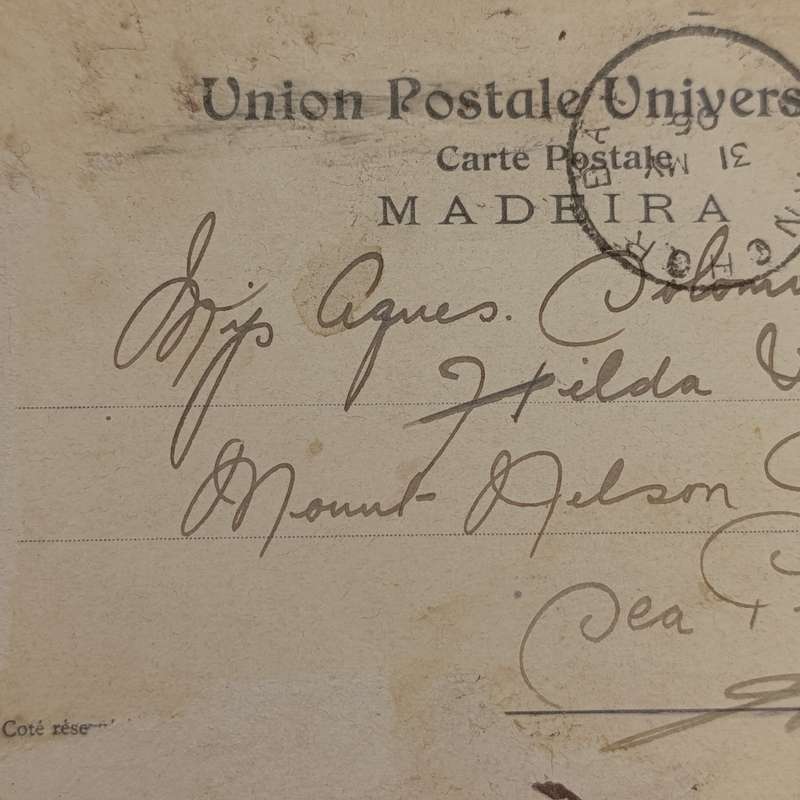 Union Postale Univers
Carte Postale
MADEIRA
31 MY 06
Miss Agnes.
Hilda
Mount Nelson
Sea
Coté rése